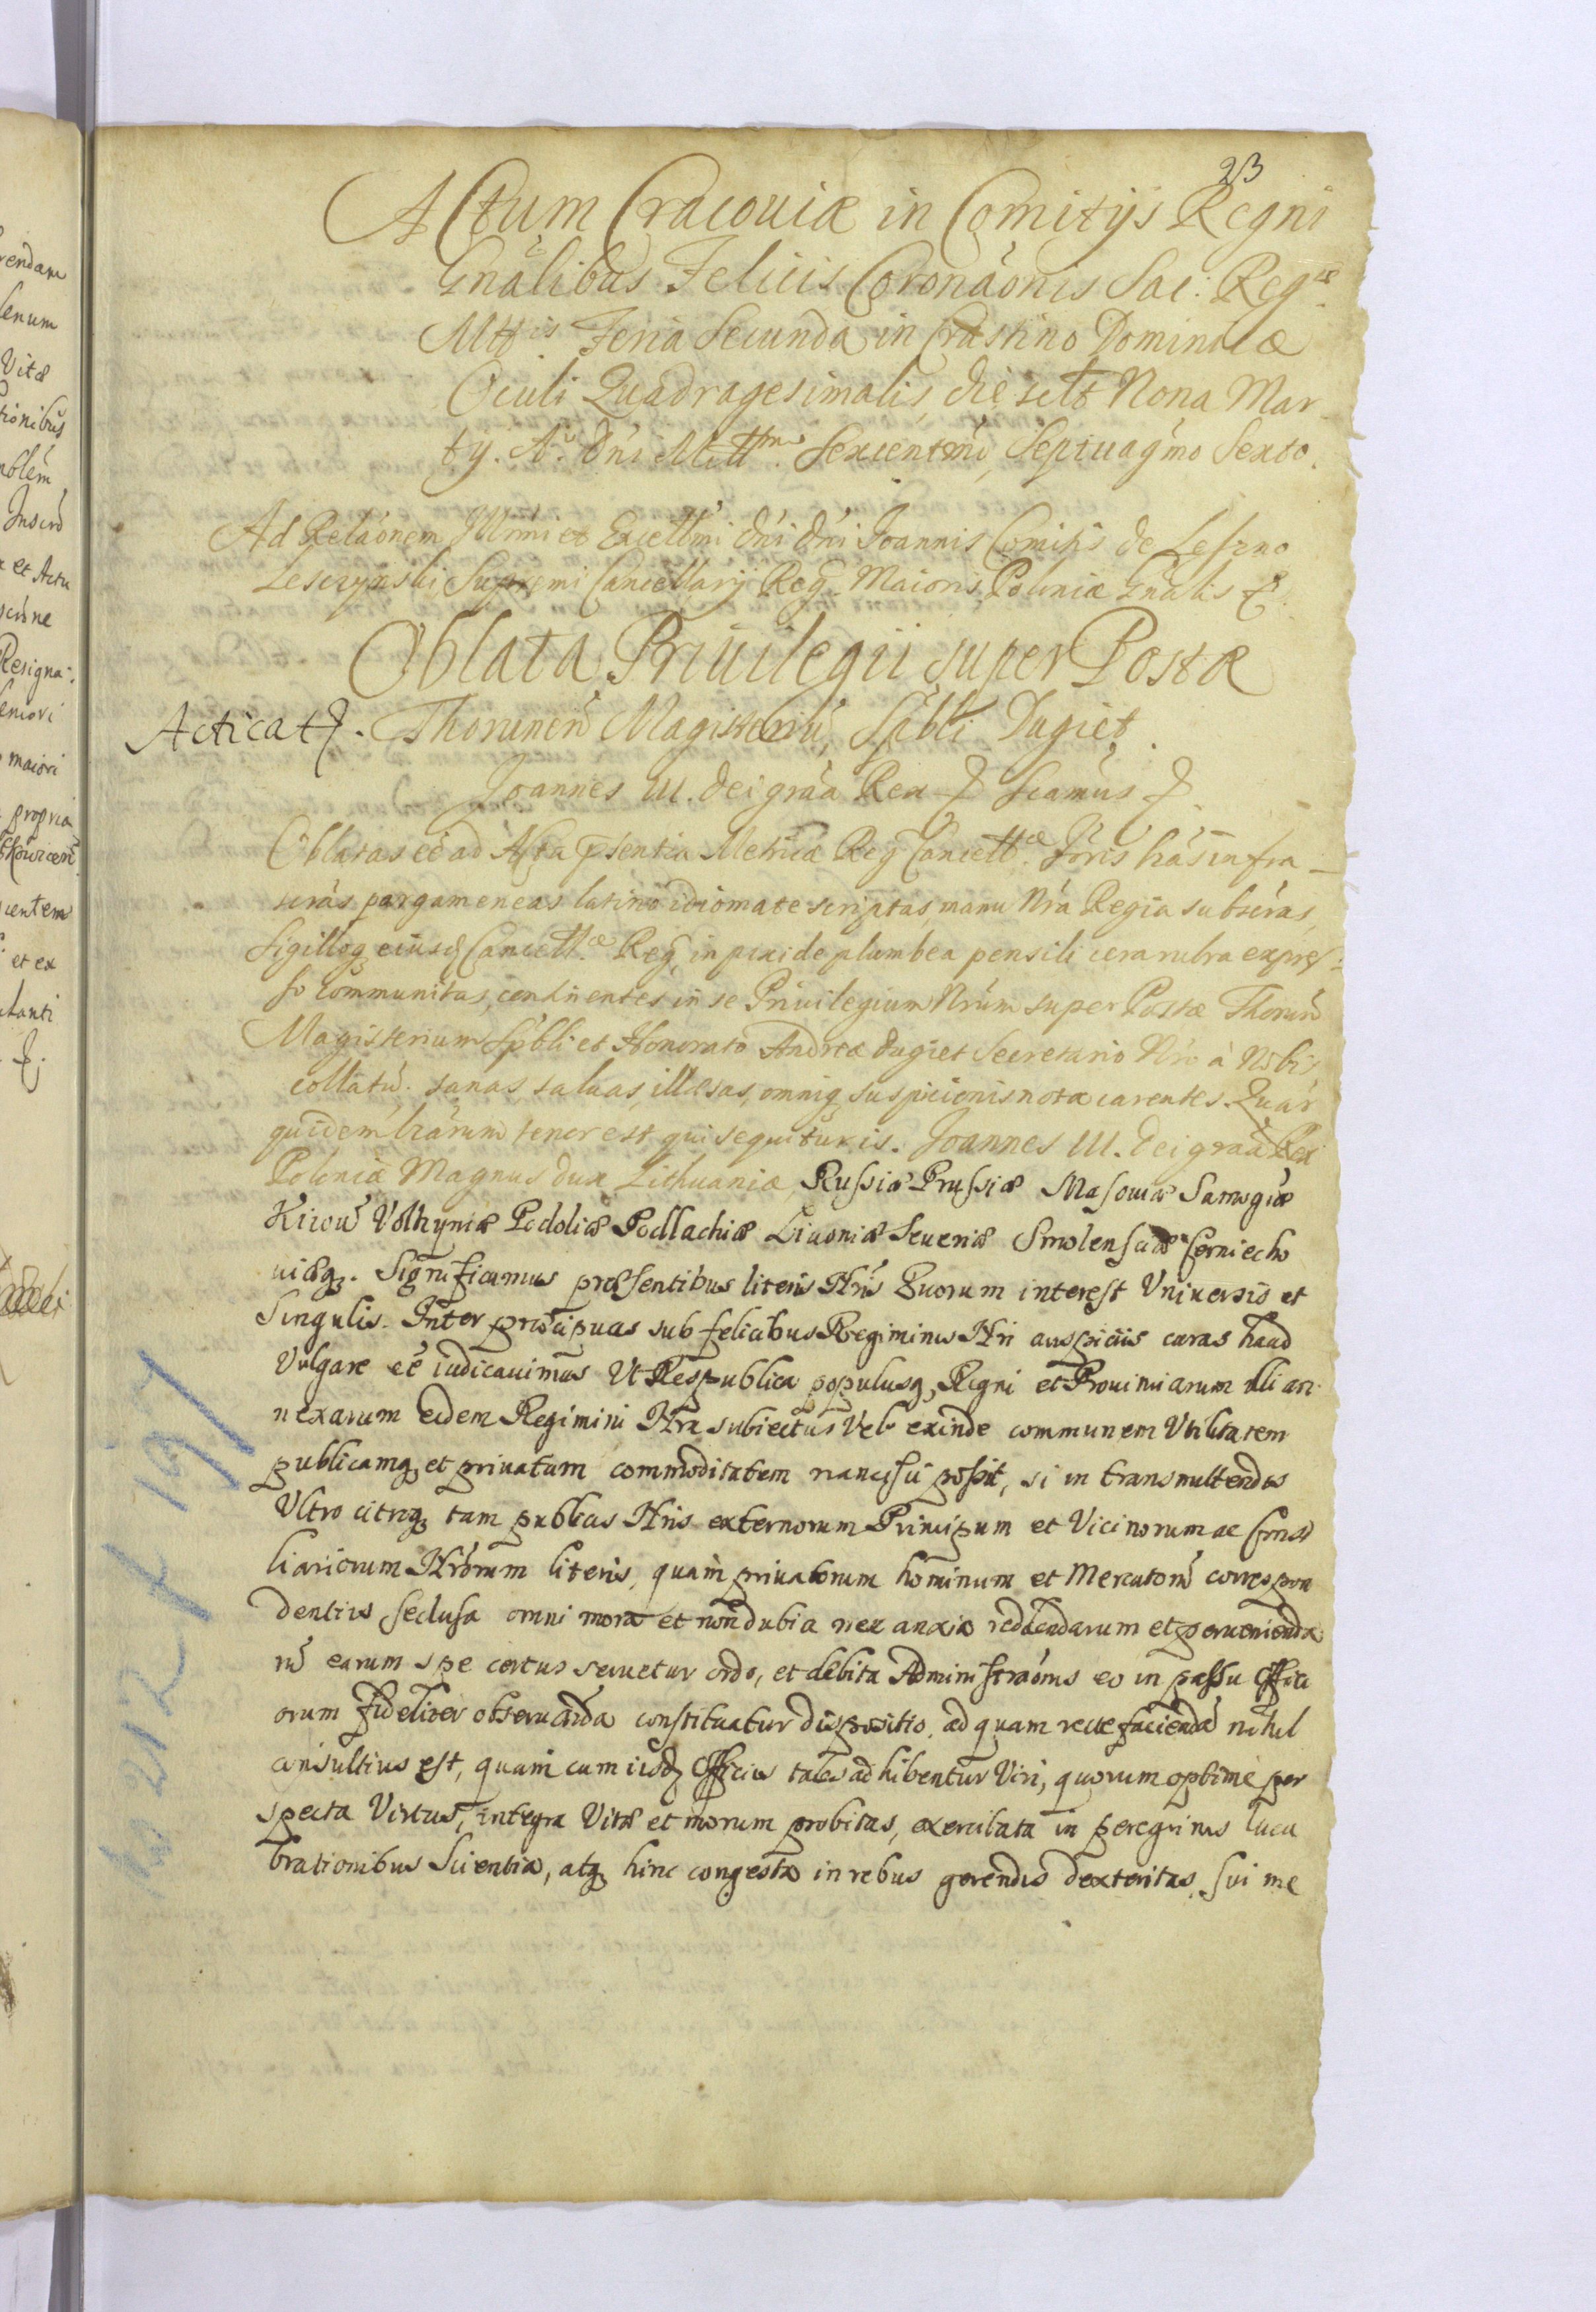 23
Actum Cracouiæ in Comitijs Regni
Gnălibus Felicis Coronăonis Sac: Reg^æ
Mtt^is Feria Secunda in Crastino Dominicæ
Oculi Quadragesimalis, die sclt Nona Mar-
tij. A° Dńi Mill^mo. Sexcentmo, Septuagmo Sexto.
Ad Relăonem Illmi et Excellmi Dńi Dńi Joannis Comitis de Leszno
Lesczynski, Supremi Cancellarij Reg. Maioris Poloniæ Gnălis &
Oblata Priuilegii super Postæ
Acticat&. Thorunen Magisteriu, Spbli Dugiet.
Joannes III. Dei gra̋a Rex & Seamus &.
Oblatas eē ad Acta p̄sentia Metricæ Reg Cancell^æ. Joris lrás infra-
scrás pargameneas latino idiomate scriptas, manu Nrá Regia subscrás,
Sigilloq, eiusd Cancell^æ. Reg, in pixide plumbea pensili cera rubra expres:
so communitas, continentes in se Priuilegium Nrúm super Postæ Thorun
Magisterium Spbli et Honorato Andreæ Dugiet Secretario Nro á Nobis
collatú. sanas, saluas, illæsas, omniq, suspicionis nota carentes. Quár
quidem lrárum tenor est qui sequitur is. Joannes III. Dei gra̋a Rex
Poloniæ Magnus Dux Lithuaniæ, Russiæ Prussiæ Masouiæ Samogitiæ
Kiiouiæ Volhyniæ Podoliæ Podlachiæ Liuoniæ Seueriæ Smolensciæ Cerniecho
uiæq. Significamus præsentibus literis Nris Quorum interest Vniuersis et
Singulis. Inter præcipuas sub felicibus Regiminis Nri auspiciis curas haud
Vulgare eē iudicauimus Vt Respublica populusq, Regni et Prouinciarum illi an-
nexarum eidem Regimini Nrő subiectus Vel exinde communem Vtilitatem
publicamq, et priuatam commoditatem nancisci possit, si in transmittendis
Vltro citroq, tam publicis Nris externorum Principum et Vicinorum ac Consi
liariorum Nrórum literis, quam priuatorum hominum et Mercatorú correspon
dentiis Seclusa omni mora et non dubia nec anxia reddendarum et perueniendá
rú earum spe certus seruetur ordo, et debita Administraőnis eo in passu Offici
orum fideliter obseruanda constituatur dispositio, ad quam recte faciendá nihil
consultius est, quam cum iisd, Officiis tales adhibentur Viri, quorum optime per
specta Virtus, integra Vitæ et morum probitas, exercitata in peregrinis lucu
brationibus Scientia, atq, hinc congesta in rebus gerendis dexteritas, sui me